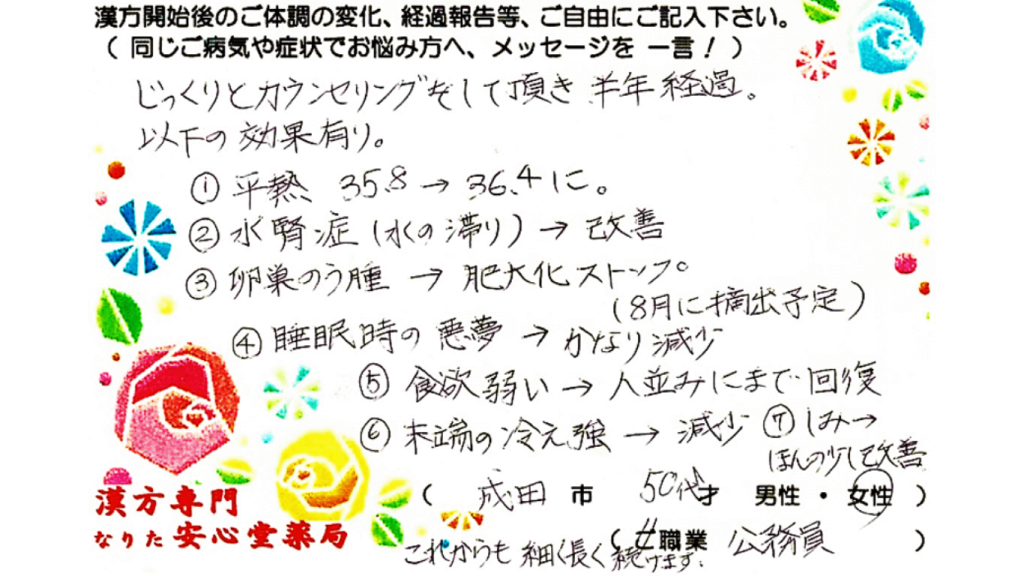 漢方開始後のご体調の変化、経過報告等、ご自由にご記入下さい。
( 同じご病気や症状でお悩み方へ、メッセージを 一言！ )
じっくりとカウンセリングをして頂き 半年 経過。
以下の 効果有り。
① 平熱 35.8 → 36.4に。
② 水腎症 (水の滞り) → 改善
③ 卵巣のう腫 → 肥大化ストップ。
(8月に摘出予定)
④ 睡眠時の 悪夢 → かなり減少
⑤ 食欲弱い → 人並みにまで 回復
⑥ 末端の冷え強 → 減少 ⑦ しみ→
ほんの少しで改善
( 成田 市 50代才 男性・女性 )
漢方専門
なりた 安心堂薬局
( 職業 公務員 )
これからも 細く長く 続けます。